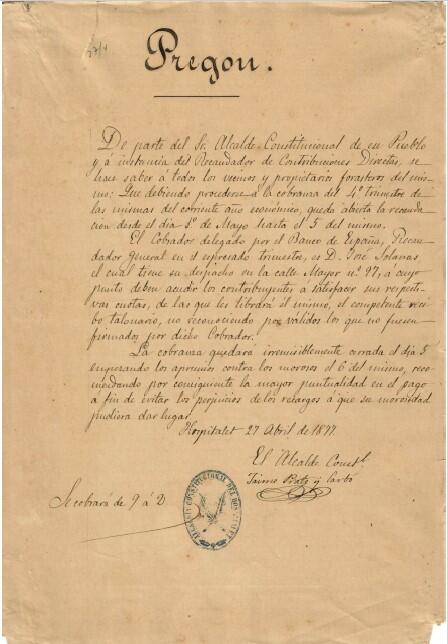 27/4
Pregon.
De parte del Sr. Alcalde Constitucional de este Pueblo
y á instancia del Recaudador de Contribuciones Directas, se
hace saber á todos los vecinos y propietarios forasteros del mis-
mo: Que debiendo procederse á la cobranza del 4º trimestre de
las mismas del corriente año económico, queda abierta la recauda-
cion desde el dia 1º de Mayo hasta el 5 del mismo.
El Cobrador delegado por el Banco de España, Recau-
dador General en el espresado trimestre, es D. José Solanas
el cual tiene su despacho en la calle Mayor nº 97, a cuyo
punto deben acudir los contribuyentes á satisfacer sus respect-
ivas cuotas, de las que les librará el mismo, el competente reci-
bo talonario, no reconociendo por válidos los que no fuesen
firmados por dicho Cobrador.
La cobranza quedará irremisiblemente cerrada el dia 5
empezando los apremios contra los morosos el 6 del mismo, reco-
mendando por consiguiente la mayor puntualidad en el pago
a fin de evitar los perjuicios de los recargos á que su morosidad
pudiera dar lugar.
Hospitalet 27 Abril de 1877
El Alcalde Const.l
Jaime y Carbó
Se cobrará de 9 á
ALCALDIA CONSTITUCIONAL DEL HOSPITALET